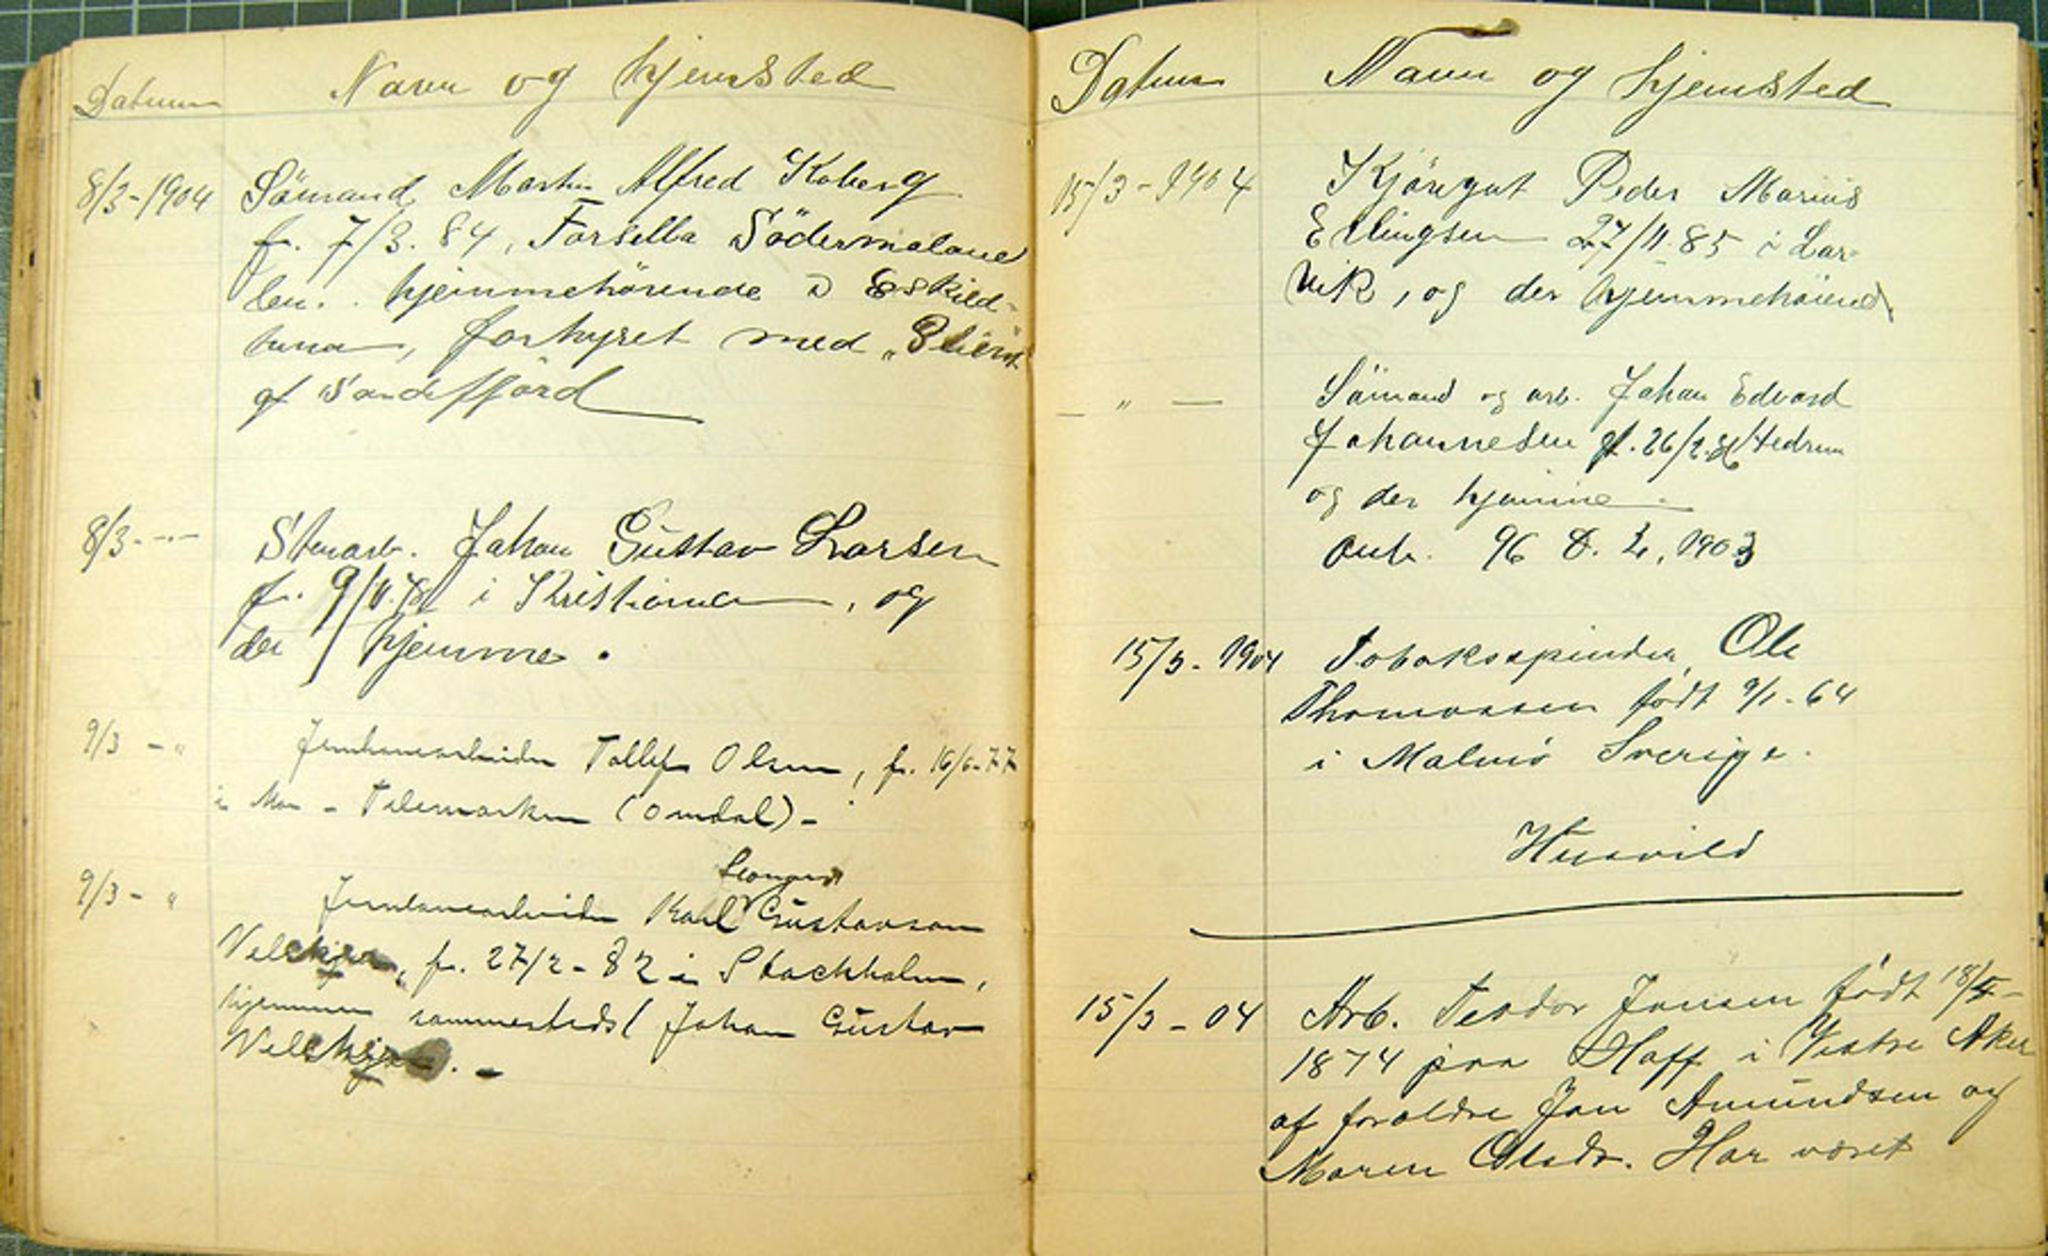 Datum
Navn og hjemsted
8/3-1904
Sömand Martin Alfred Koberg
f. 7/3. 84, Forsella Södermalane
len. hjemmehörende i Eskild-
tuna, forhyret med
af Sandeffjord
8/3 - " -
Stenarb. Johan Gustav Larsen
f. i Kristiania, og
der hjemme.
9/3 - "
Jernbanearbeider Tollef Olsen, f. 16/6-77
i Mo - Telemarken (Omdal) -
9/3 - "
Leonard
Jernbanearbeider Karl Gustavson
f. 27/2-82 i Stockholm,
hjemme sammesteds ( Johan Gustav
Datum
Navn og hjemsted
15/3-1904
Peder Marius
Ellingsen 27/11.85 i Lar-
vik, og der hjemmehörend
— " —
Sömand og arb. Johan Edvard
Johannesen f. 26/2. Hedrum
og der hjemme
96 1903
15/3-1904
Tobaksspinder, Ole
Thomassen födt 9/1-64
i Malmö Sverige.
Husvild
15/3-04
Arb. Teodor Jonsen födt 18/5-
1874 paa Hoff i Vestre Aker
af foræeldre Jon Amundsen og
Maren Olsdr. Har været